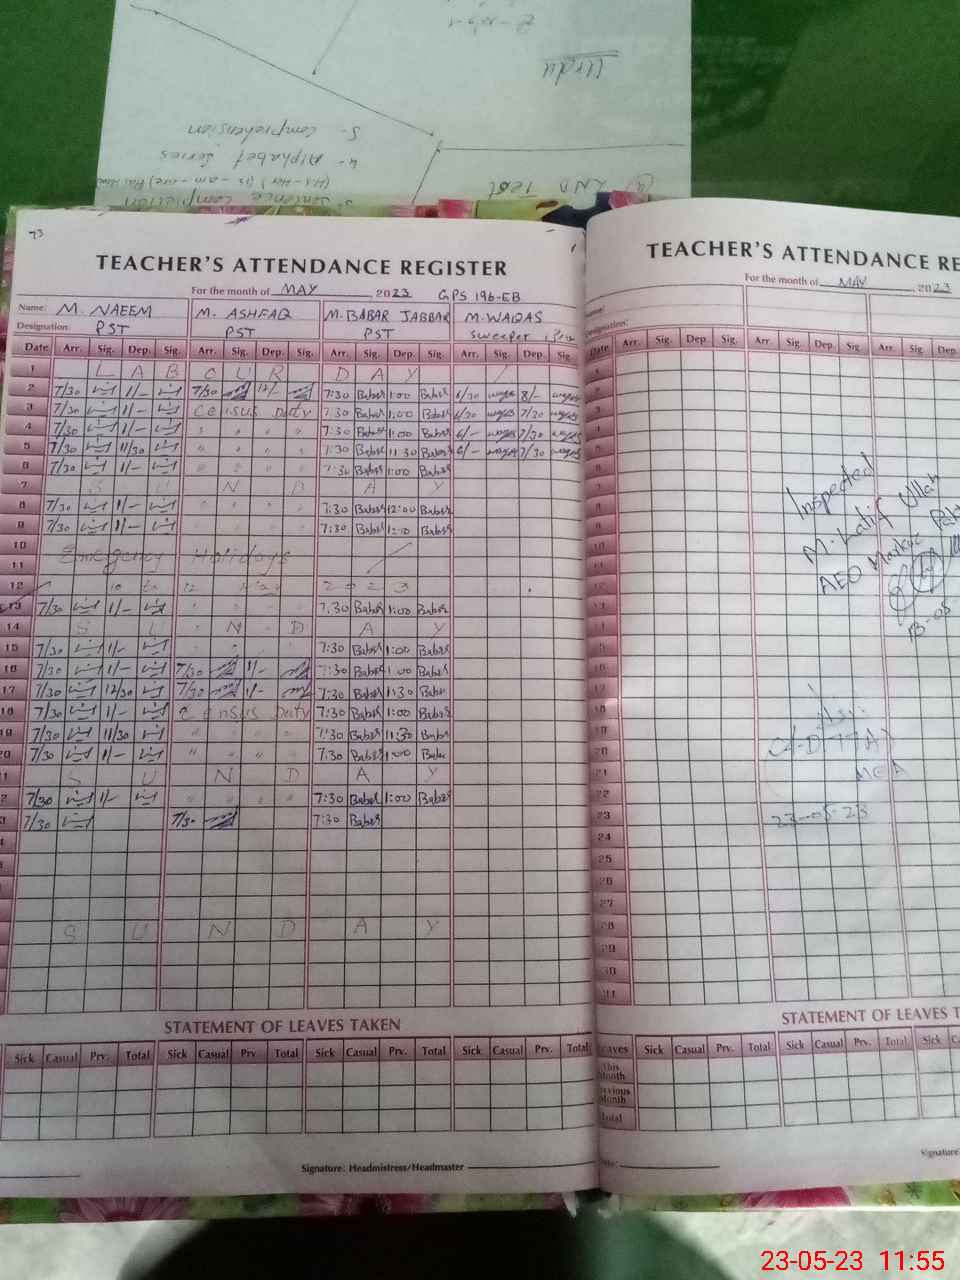 Urdu
5- Comprehension
4- Alphabet Series
(His-Her) (is-am-are)
3- Sentence Completion
LND Test
73
TEACHER'S ATTENDANCE REGISTER
For the month of MAY 2023 GPS 196-EB
Name: M. NAEEM M. ASHFAQ M. BABAR JABBAR M. WAQAS
Designation: PST PST PST Sweeper
Date Arr. Sig. Dep. Sig. Arr. Sig. Dep. Sig. Arr. Sig. Dep. Sig. Arr. Sig. Dep. Sig.
1 L A B O U R D A Y
2 7/30 1/- 7/30 12/- 7:30 Babar 1:00 Babar 6/30 waqas 8/- waqas
3 7/30 1/- Census Duty 7:30 Babar 1:00 Babar 6/30 waqas 7/30 waqas
4 7/30 1/- " " " 7:30 Babar 1:00 Babar 6/- waqas 7/30 waqas
5 7/30 11/30 " " " 7:30 Babar 11:30 Babar 6/- waqas 7/30 waqas
6 7/30 1/- " " " 7:30 Babar 1:00 Babar
7 S U N D A Y
8 7/30 1/- " " " 7:30 Babar 12:00 Babar
9 7/30 1/- " " " 7:30 Babar 12:00 Babar
10
11 Emergency Holidays
12 10 to 12 May 2023
13 7/30 1/- " " " 7:30 Babar 1:00 Babar
14 S U N D A Y
15 7/30 1/- " " " 7:30 Babar 1:00 Babar
16 7/30 1/- 7/30 1/- 7:30 Babar 1:00 Babar
17 7/30 12/30 7/30 1/- 7:30 Babar 11:30 Babar
18 7/30 1/- Census Duty 7:30 Babar 1:00 Babar
19 7/30 11/30 " " " 7:30 Babar 11:30 Babar
20 7/30 1/- " " " 7:30 Babar 1:00 Babar
1 S U N D A Y
2 7/30 1/- " " " 7:30 Babar 1:00 Babar
3 7/30 7/30 7:30 Babar
S U N D A Y
STATEMENT OF LEAVES TAKEN
Sick Casual Prv. Total Sick Casual Prv. Total Sick Casual Prv. Total Sick Casual Prv. Total
Signature: Headmistress/Headmaster
TEACHER'S ATTENDANCE RE
For the month of MAY 2023
Name:
Designation:
Date Arr. Sig. Dep. Sig. Arr. Sig. Dep. Sig. Arr. Sig. Dep.
Inspected
M. Latif Ullah
AEO Markaz
13-05
MEA
23-05-23
20
21
22
23
24
25
26
27
28
29
30
31
STATEMENT OF LEAVES T
Leaves Sick Casual Prv. Total Sick Casual Prv. Total Sick
This Month
Previous Month
Total
Date:
Signature:
23-05-23 11:55